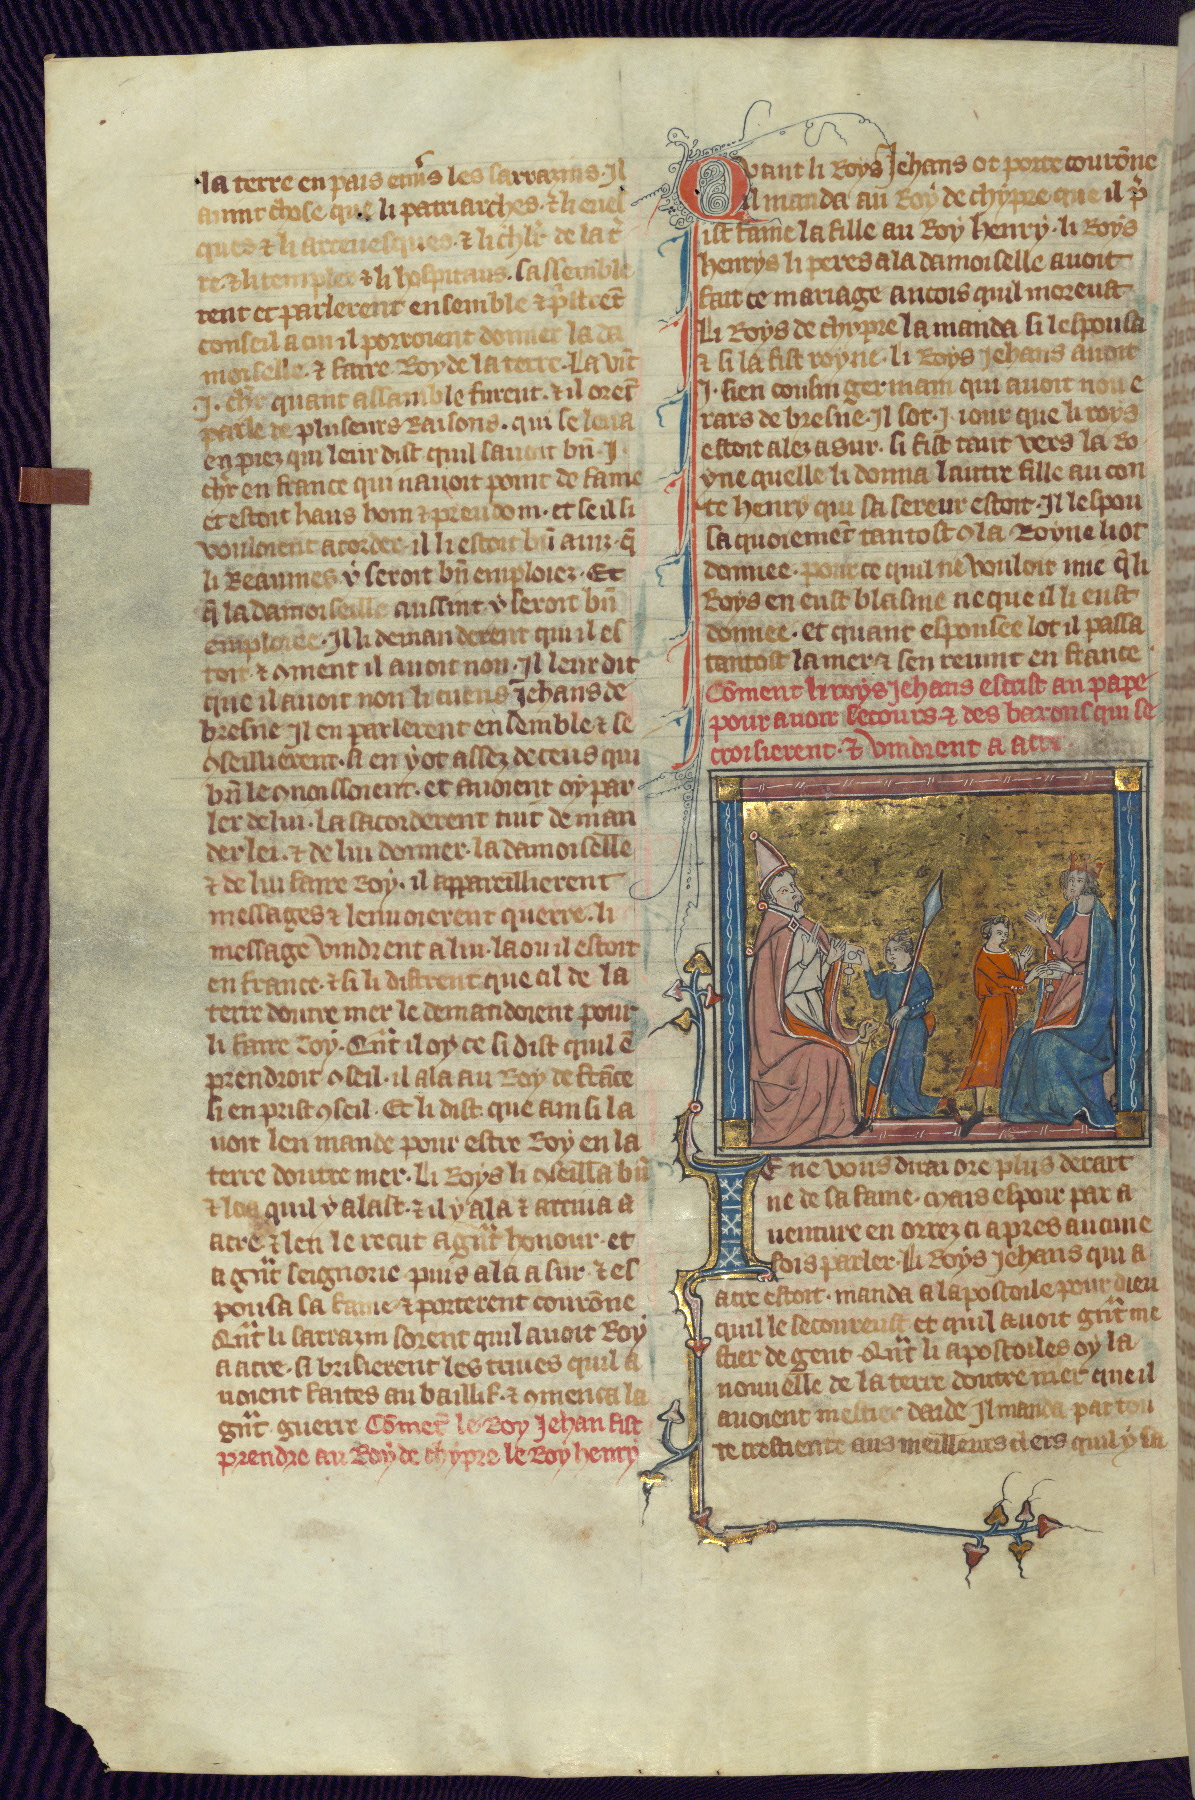 la terre en pais enus les sarrazins. Il
auint chose que li patriarches. & li eues
ques & li arceuesques. & li chlr de la t
re. & li temples & li hospitaus. sassemble
rent et parlerent ensemble & pstrent
conseil a cui il porroient donner la da
moiselle. & faire Roy de la terre. La uīt
.J. chr quant assamble furent. & il orēt
parle de pluseurs Raisons. qui se leua
en piez qui leur dist quil sauoit bn̄ .J.
chr en france qui nauoit point de fame
et estoit haus hom & preudom. et se il li
vouloient acorder il li estoit bn̄ auiz. q̄
li Reaumes y seroit bn̄ emploiez. Et
q̄ la damoiseille aussint y seroit bn̄
emploiee. Il li demanderent qui il es
toit & ꝯment il auoit non. Il leur dit
que il auoit non li cuens Jehans de
bresne Il en parlerent ensemble & se
ꝯseillierent. si en y ot assez de ceus qui
bn̄ le ꝯnoissoient. et auoient oy par
ler de lui. La sacorderent tuit de man
der lei. & de lui donner la damoiselle
& de lui faire Roy. il appareillierent
messages & lenuoierent querre. li
message vindrent a lui. la ou il estoit
en france. & si li distrent que al de la
terre doutre mer le demandoient pour
li faire Roy. Qn̄t il oy ce si dist quil ē
prendroit ꝯseil. il ala au Roy de frāce
si en prist ꝯseil. Et li dist que ainsi la
uoit len mande pour estre Roy en la
terre doutre mer. Li Roys li ꝯseilla bn̄
& loa quil y alast. & il y ala & arriua a
acre & len le recut a gn̄t honour. et
a gn̄t seignorie puis ala a sur. & es
pousa sa fame & porterent courōne
Qn̄t li sarrazin sorent quil auoit Roy
a acre. si brisierent les triues quil a
uoient faites au baillif. & ꝯmenca la
gn̄t guerre Cōmēt le Roy Jehan fist
prendre au Roy de chypre le Roy henry
Quant li Roys Jehans ot porte courōne
il manda au Roy de chypre que il p̄
ist fame la fille au Roy henry. li Roys
henrys li peres a la damoiselle auoit
fait ce mariage ancois quil moreust
Li Roys de chypre la manda si lespousa
& si la fist royne. li Roys Jehans auoit
.J. sien cousin germain qui auoit non e
rars de bresne. Il sot .J. iour que li roys
estoit alez a sur. si fist tant vers la Ro
yne quelle li donna lautre fille au con
te henry qui sa sereur estoit. Il lespou
sa quoiemēt tantost ꝯ la Royne li ot
donnee. pour ce quil ne vouloit mie q̄ li
Roys en eust blasme ne que il li eust
donnee. Et quant espousee lot il passa
tantost la mer & sen reuint en france
Cōment li roys Jehans escrist au pape
pour auoir secours & des barons qui se
croisierent. & vindrent a acre
Ie ne vous dirai ore plus derart
ne de sa fame. Mais espoir par a
uenture en orrez ci apres aucune
fois parler. Li Roys Jehans qui a
acre estoit. manda a lapostoile pour dieu
quil le secoureust et quil auoit gn̄t me
stier de gent. Qn̄t li apostoiles oy la
nouuelle de la terre doutre mer que il
auoient mestier daide Il manda par tou
te crestiente aus meilleurs clers quil y sa